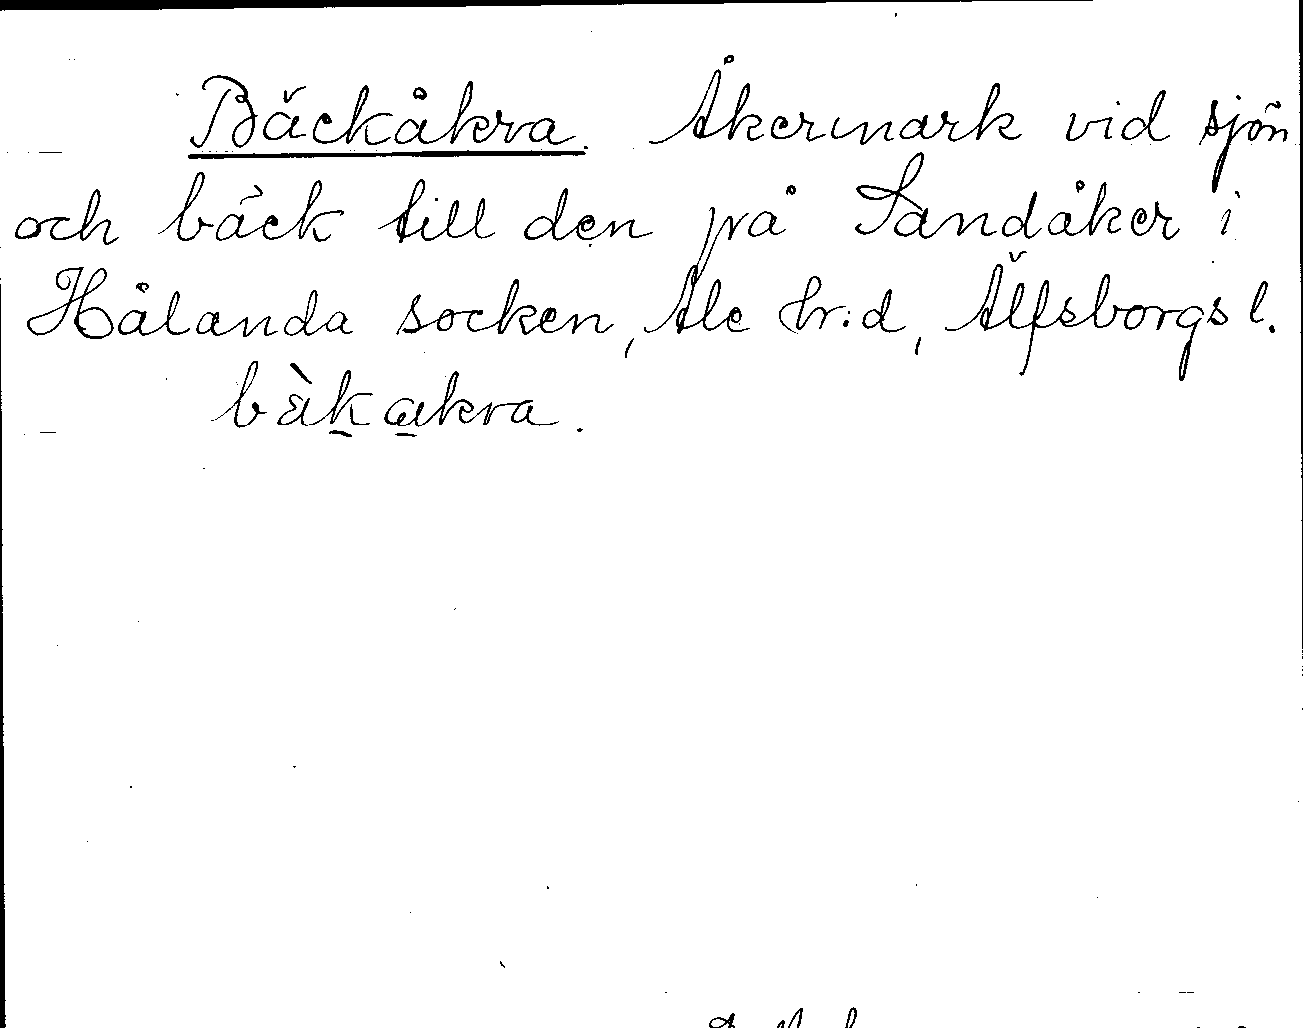 Bäckåkra. Åkermark vid sjön
och bäck till den på Sandåker i
Hålanda socken, Ale hr:d, Älfsborgs l.
bàkakra.